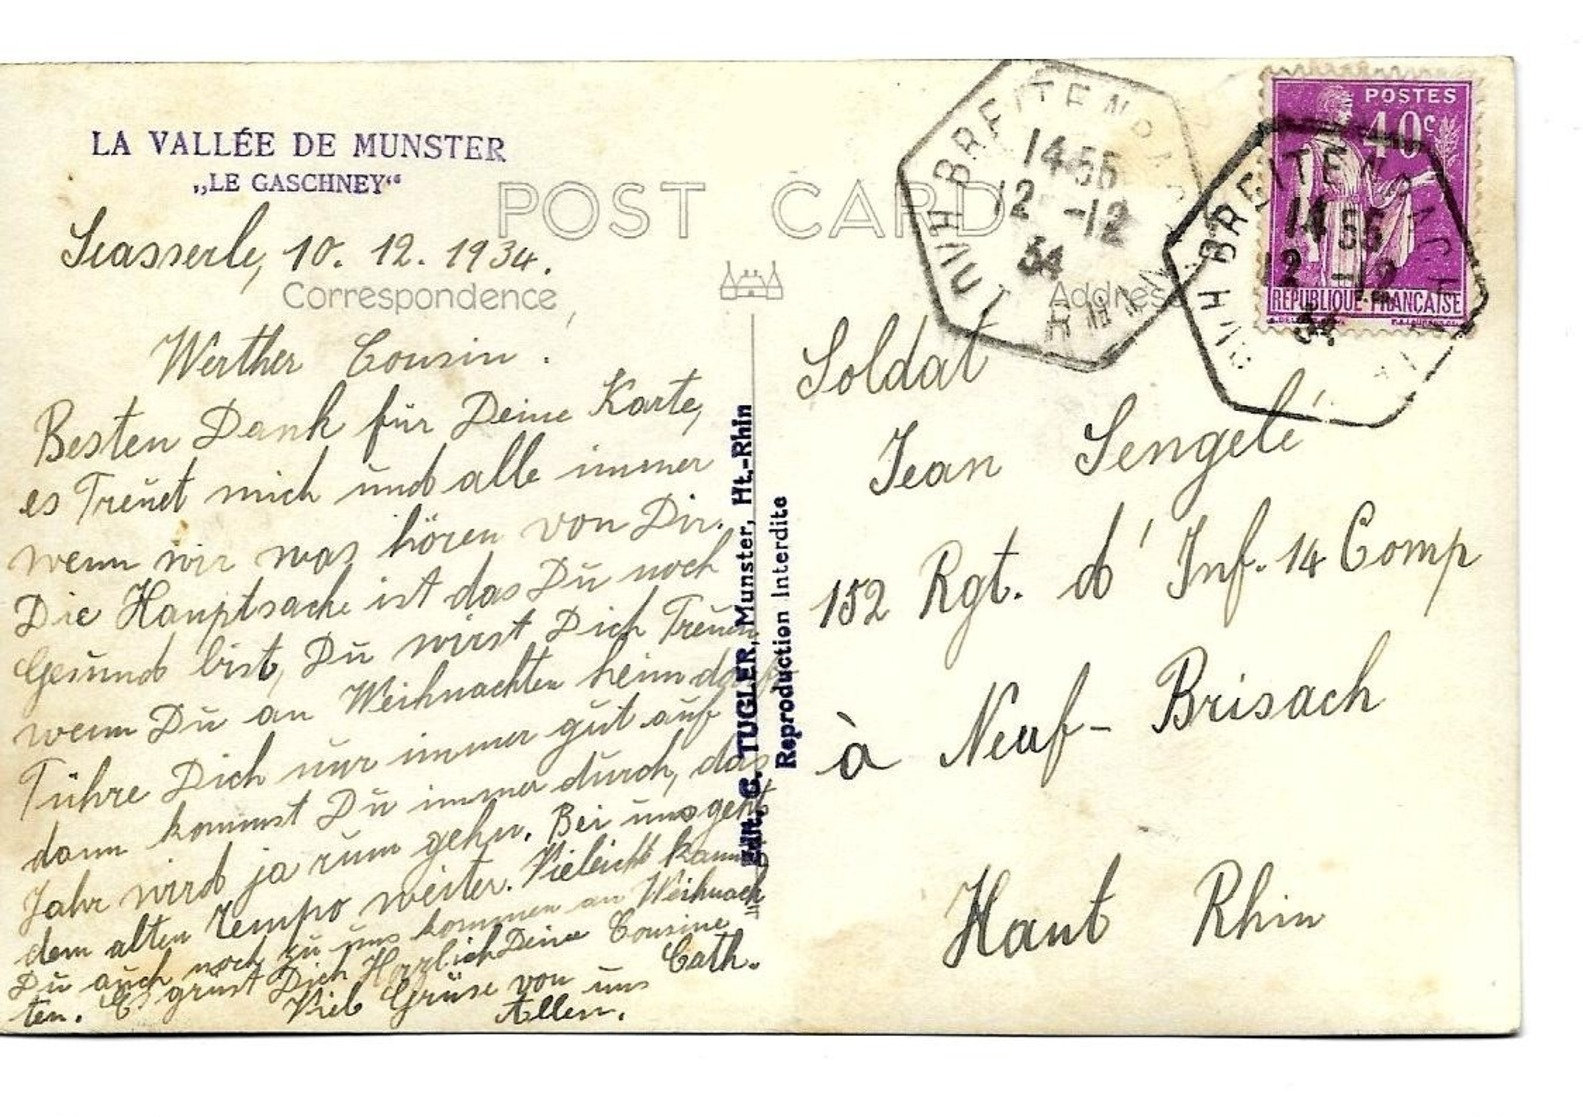 LA VALLÉE DE MUNSTER
„LE GASCHNEY“
POST CARD
10. 12. 1934.
Correspondence
Address
Werther Cousin.
Besten Dank für Deine Karte,
es Freut mich und alle immer
wenn wir was hören von Dir.
Die Hauptsache ist das Du noch
Gesund bist, Du wirst Dich Freuen
wenn Du an Weihnachten heim darfst
Führe Dich nur immer gut auf
dann kommst Du immer durch, das
Jahr wird ja rum gehn. Bei uns geht
dem alten Tempo weiter. Vieleicht kannst
Du auch noch zu uns kommen an Weihnach
ten. Es grüst Dich Herzlich Deine Cousine
Cath.
Viele Grüse von uns
Allen.
Edit. C. TUGLER, Munster, Ht.-Rhin
Reproduction Interdite
BREITENBACH
14 55
12 -12
34
HAUT RHIN
POSTES
40c
REPUBLIQUE FRANÇAISE
BREITENBACH
14 55
12 -12
34
Soldat
Jean Sengelé
152 Rgt. d'Inf. 14 Comp
à Neuf-Brisach
Haut Rhin